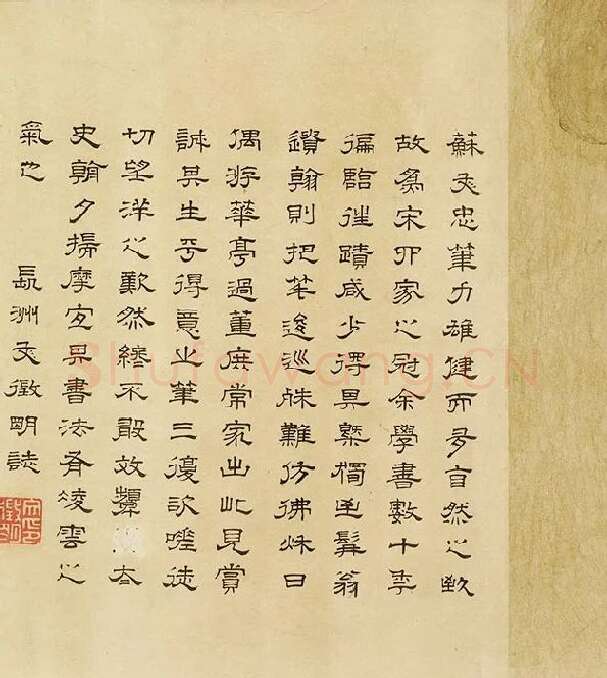 蘇文忠筆力雄健而多自然之致
故為宋四家之冠余學書數十年
徧臨往蹟咸少得其槩獨髯翁
遺翰則把筆逡巡殊難仿佛秋日
偶游華亭過董庶常家出此見賞
誠其生平得意之筆三復徒
切望洋之歎然終不敢效顰太
史朝夕揣摩宜其書法有凌雲之
氣也
長洲文徵明誌
Shufawang.CN